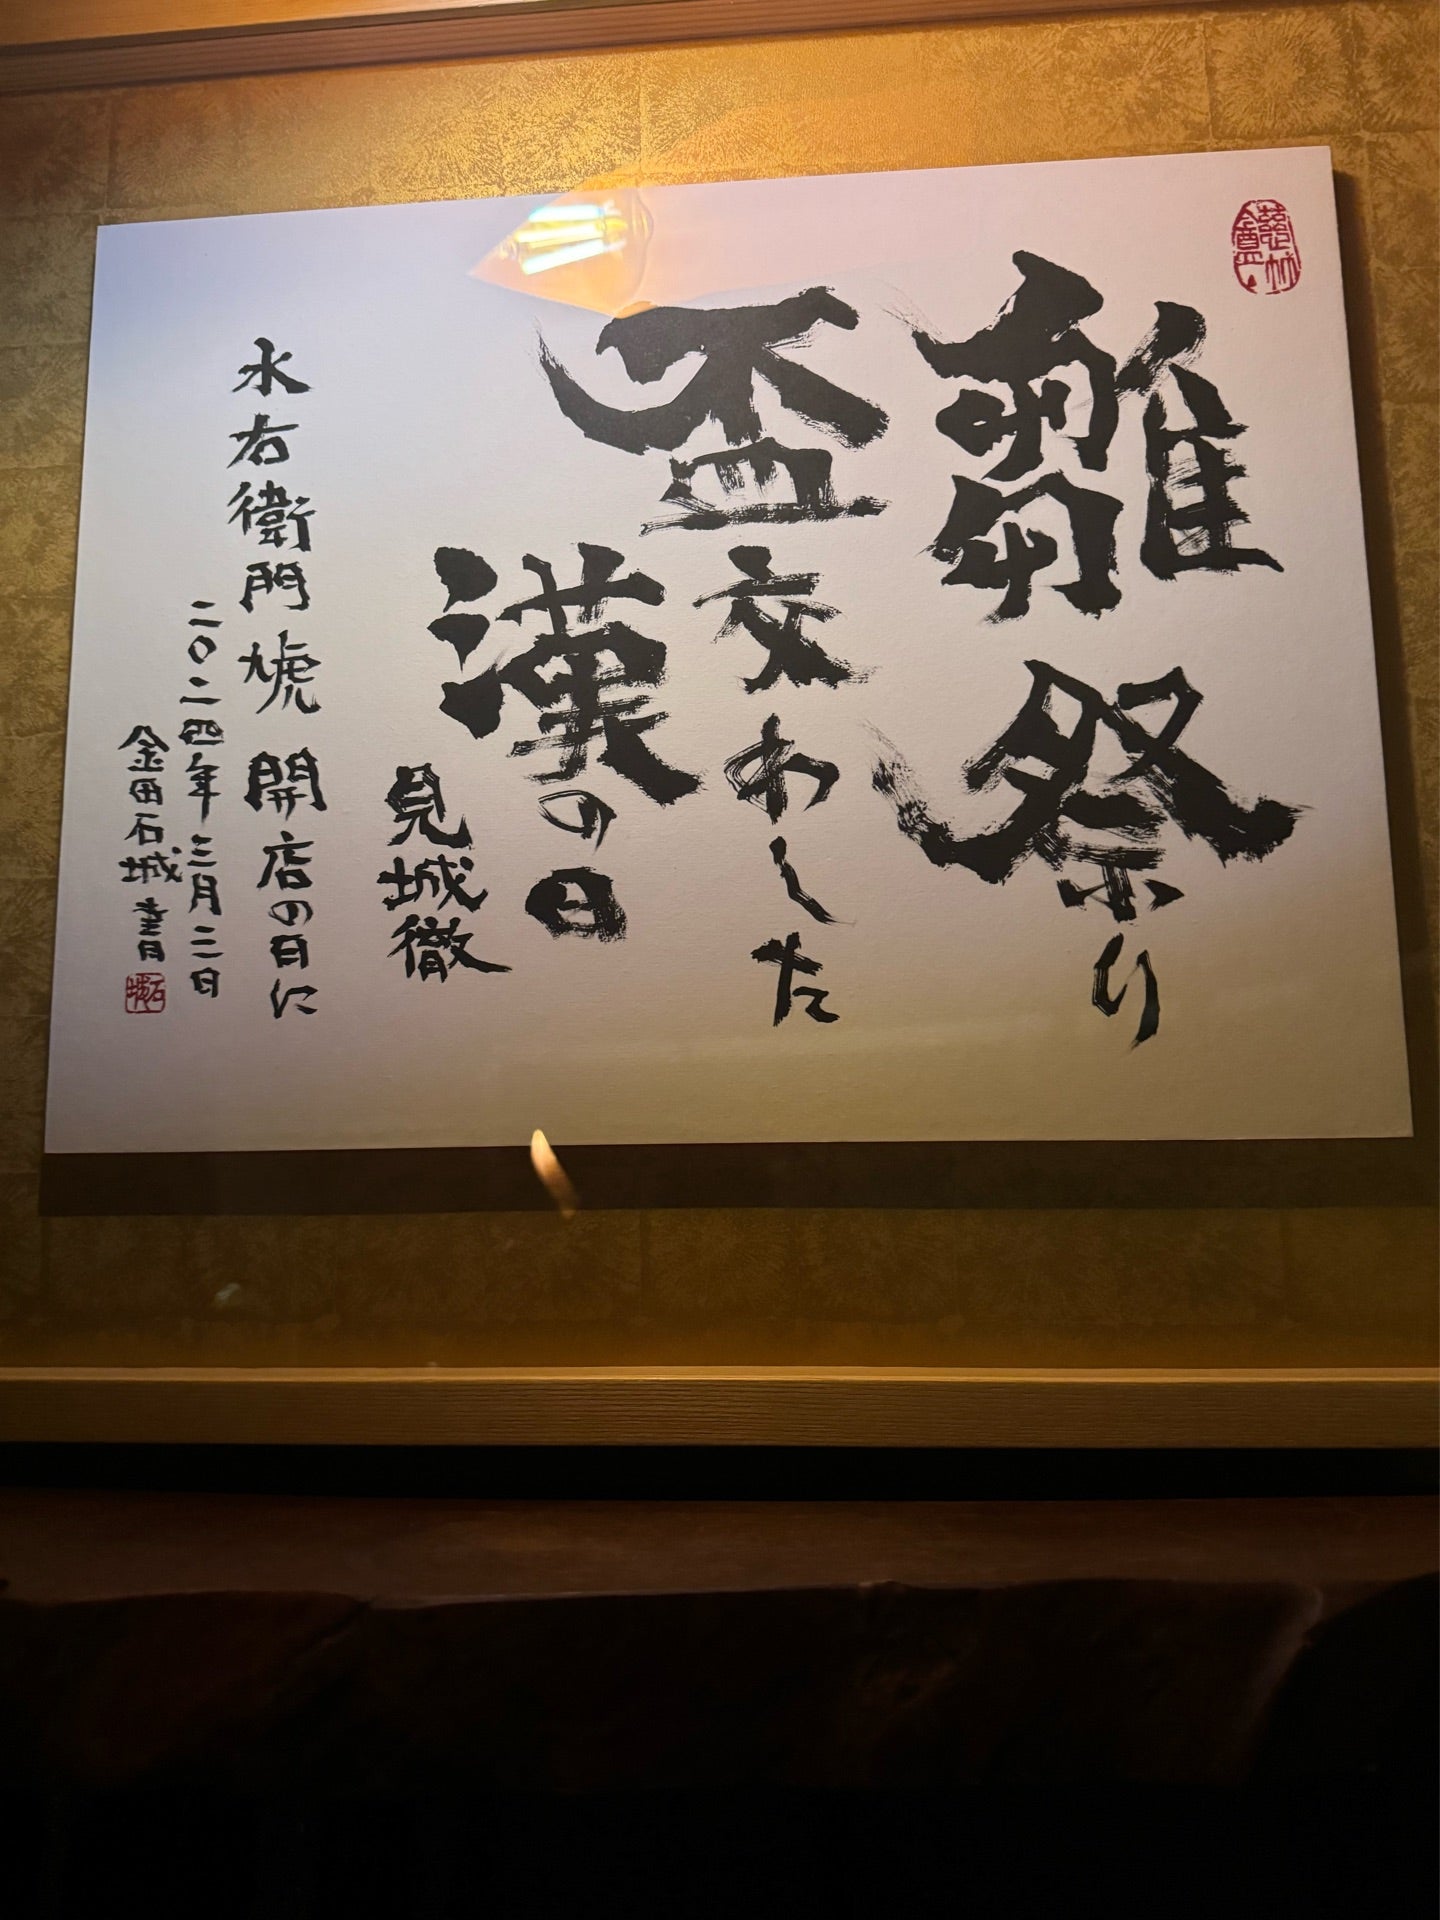 雛祭り
盃交わした
漢の日
見城徹
永右衛門虎 開店の日に
二〇二四年三月三日
金田石城書
石城